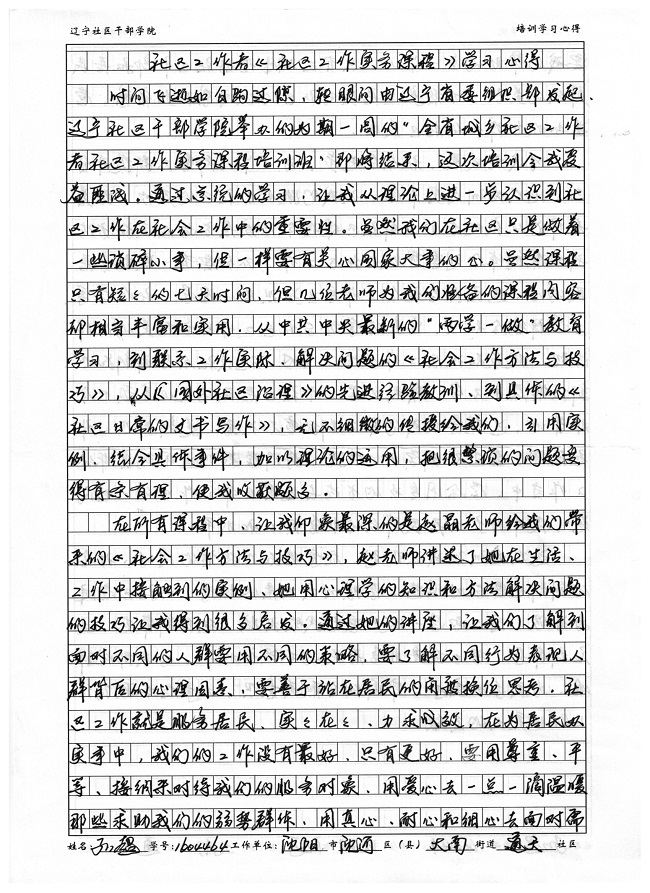 辽宁社区干部学院 培训学习心得
社区工作者《社区工作实务课程》学习心得
时间飞逝如白驹过隙，转眼间由辽宁省委组织部发起、
辽宁社区干部学院举办的为期一周的"全省城乡社区工作
者社区工作实务课程培训班"即将结束，这次培训令我受
益匪浅。通过系统的学习，让我从理论上进一步认识到社
区工作在社会工作中的重要性。虽然我们在社区只是做着
一些琐碎小事，但一样要有关心国家大事的心。虽然课程
只有短短的七天时间，但几位老师为我们准备的课程内容
却相当丰富和实用，从中共中央最新的"两学一做"教育
学习，到联系工作实际、解决问题的《社会工作方法与技
巧》，从《国外社区治理》的先进经验教训、到具体的《
社区日常的文书写作》，无不细微的传授给我们，引用实
例、结合具体事件，加以理论的运用，把很繁琐的问题变
得有宗有理、使我收获颇多。
在所有课程中，让我印象最深的是赵晶老师给我们带
来的《社会工作方法与技巧》，赵老师讲述了她在生活、
工作中接触到的实例、她用心理学的知识和方法解决问题
的技巧让我得到很多启发。通过她的讲座，让我们了解到
面对不同的人群要用不同的策略，要了解不同行为表现人
群背后的心理因素，要善于站在居民的角度换位思考。社
区工作就是服务居民、实实在在、力求成效，在为居民办
实事中，我们的工作没有最好、只有更好，要用尊重、平
等、接纳来对待我们的服务对象，用爱心去一点一滴温暖
那些求助我们的弱势群体、用真心、耐心和细心去面对需
姓名 学号:1604464 工作单位:沈阳 市 沈河 区（县） 大南 街道 通天 社区